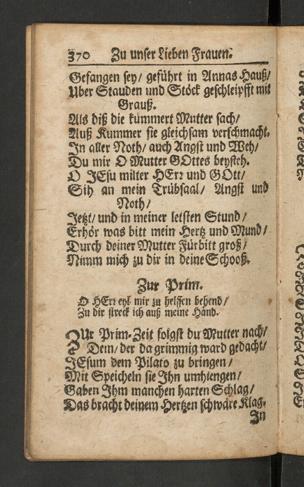 370 Zu unser Lieben Frauen.
Gefangen sey/ geführt in Annas Hauß/
Uber Stauden und Stöck geschleipfft mit
Grauß.
Als diß die kümmert Mutter sach/
Auß Kummer sie gleichsam verschmacht.
In aller Noth/ auch Angst und Weh/
Du mir O Mutter GOttes beysteh.
O JEsu milter HErr und GOtt/
Sih an mein Trübsaal/ Angst und
Noth/
Jetzt/ und in meiner letsten Stund/
Erhör was bitt mein Hertz und Mund/
Durch deiner Mutter Fürbitt groß/
Nimm mich zu dir in deine Schooß.
Zur Prim.
O HErr eyl mir zu helffen behend/
Zu dir streck ich auß meine Händ.
ZUr Prim-Zeit folgst du Mutter nach/
Dem/ der da grimmig ward gedacht/
JEsum dem Pilato zu bringen/
Mit Speicheln sie Ihn umhiengen/
Gaben Ihm manchen harten Schlag/
Das bracht deinem Hertzen schwäre Klag.
In